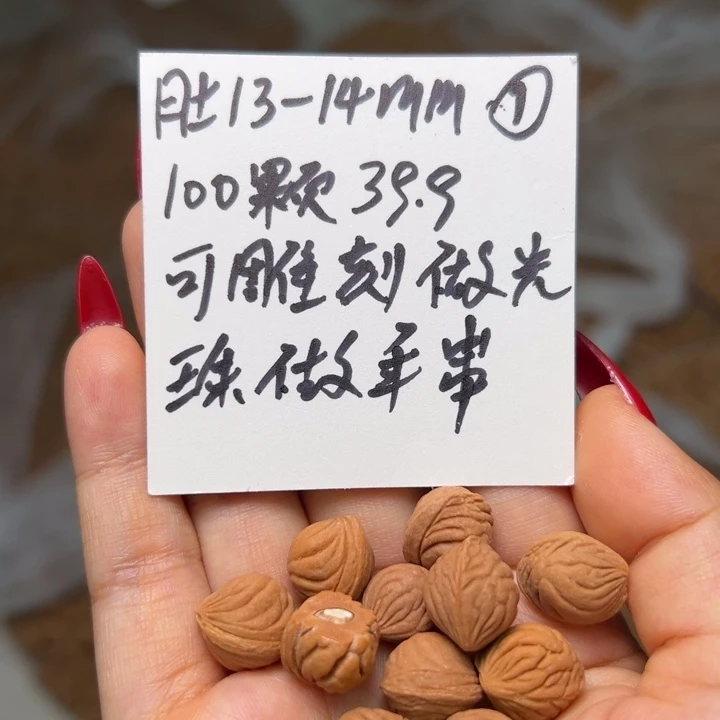 肚13-14mm ①
100颗 39.9
可雕刻做光
珠做手串